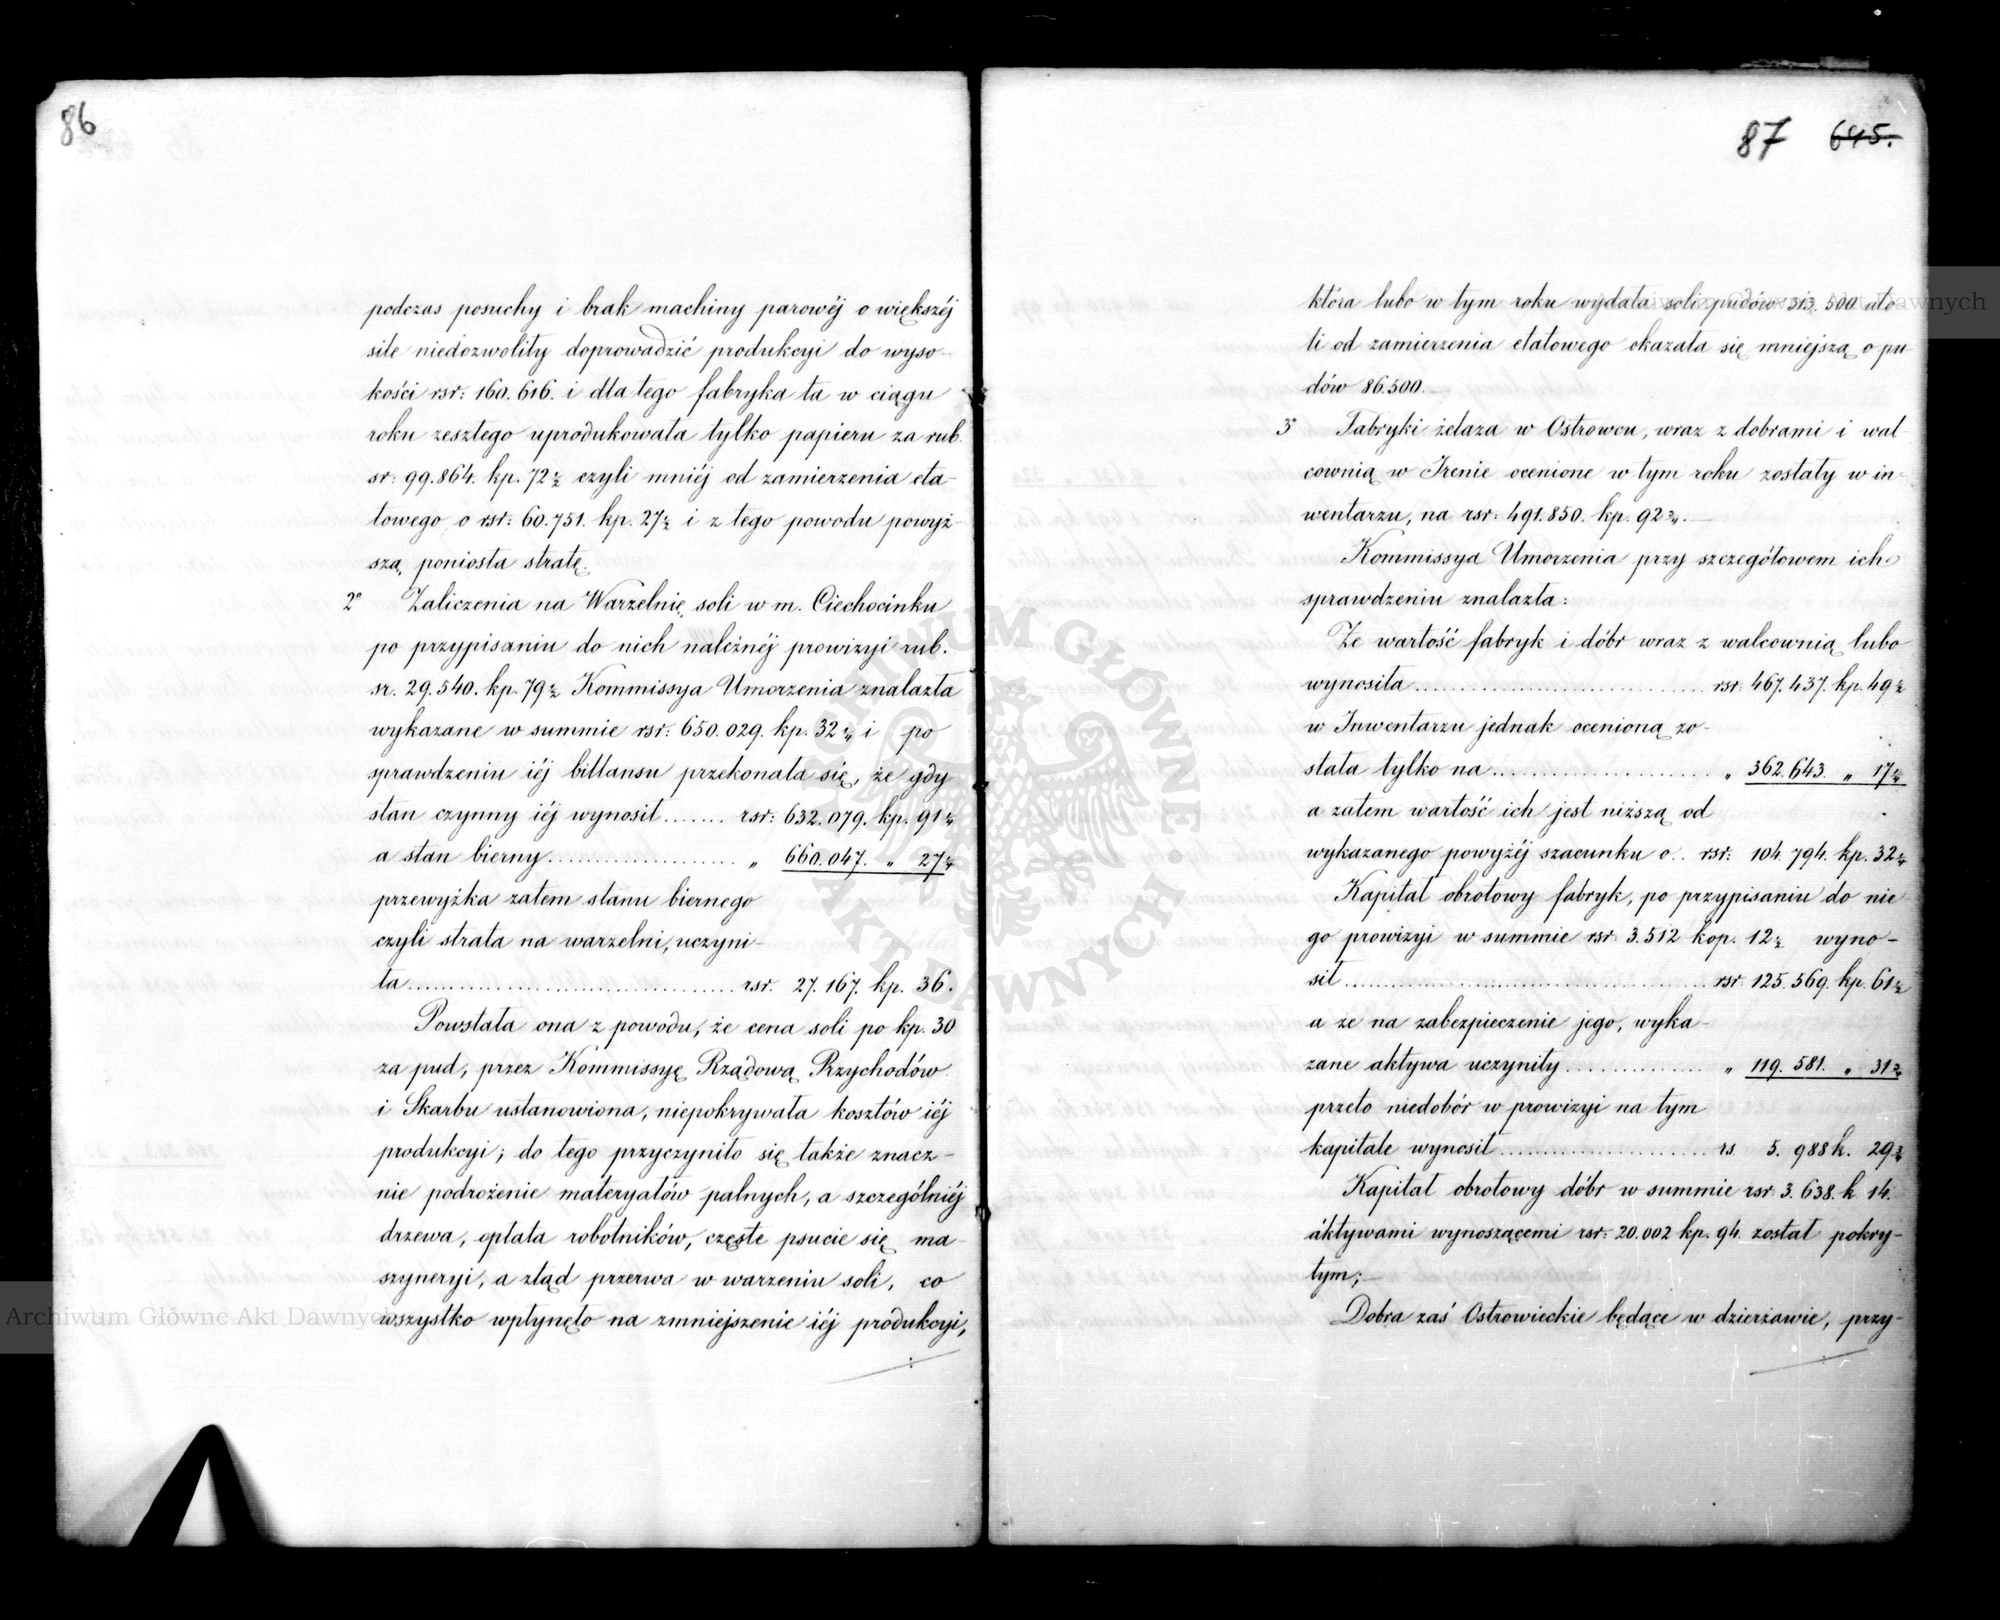 86
podczas posuchy i brak machiny parowéj o większéj
sile niedozwoliły doprowadzić produkcyi do wyso-
kości rsr: 160.616. i dla tego fabryka ta w ciągu
roku zeszłego uprodukowała tylko papieru za rub.
sr: 99.864. kp. 72½ czyli mniéj od zamierzenia eta-
towego o rsr: 60.751. kp. 27½ i z tego powodu powyż-
szą poniosła stratę.
2° Zaliczenia na Warzelnię soli w m. Ciechocinku
po przypisaniu do nich należnéj prowizyi rub.
sr. 29.540. kp. 79½ Kommissya Umorzenia znalazła
wykazane w summie rsr: 650.029. kp. 32¼ i po
sprawdzeniu iéj billansu przekonała się, że gdy
stan czynny iéj wynosił....... rsr: 632.079. kp. 91¼
a stan bierny.................... „ 660.047. „ 27¼
przewyżka zatem stanu biernego
czyli strata na warzelni, uczyni-
ła.................................. rsr. 27.167. kp. 36.
Powstała ona z powodu, że cena soli po kp. 30
za pud, przez Kommissyę Rządową Przychodów
i Skarbu ustanowiona, niepokrywała kosztów iéj
produkcyi; do tego przyczyniło się także znacz-
nie podrożenie materyałów palnych, a szczególniéj
drzewa, opłata robotników, częste psucie się ma-
szyneryi, a ztąd przerwa w warzeniu soli, co
wszystko wpłynęło na zmniejszenie iéj produkcyi,
87 645.
która lubo w tym roku wydała soli pudów 313.500 ato
li od zamierzenia etatowego okazała się mniejszą o pu
dów 86.500.
3° Fabryki żelaza w Ostrowcu, wraz z dobrami i wal-
cownią w Irenie ocenione w tym roku zostały w in-
wentarzu, na rsr: 491.850. kp. 92¾.
Kommissya Umorzenia przy szczegółowem ich
sprawdzeniu znalazła:
Że wartość fabryk i dóbr wraz z walcownią lubo
wynosiła.............................. rsr: 467.437. kp. 49½
w Inwentarzu jednak ocenioną zo-
stała tylko na........................ „ 362.643. „ 17¼
a zatem wartość ich jest niższą od
wykazanego powyżéj szacunku o.. rsr: 104.794. kp. 32¼
Kapitał obrotowy fabryk, po przypisaniu do nie
go prowizyi w summie rsr. 3.512 kop. 12½ wyno-
sił...................................... rsr. 125.569. kp. 61½
a że na zabezpieczenie jego, wyka-
zane aktywa uczyniły.............. „ 119.581. „ 31¾
przeto niedobór w prowizyi na tym
kapitale wynosił...................... rs. 5.988 k. 29¾
Kapitał obrotowy dóbr w summie rsr. 3.638. k 14.
aktywami wynoszącemi rsr: 20.002 kp. 94. został pokry-
tym;
Dobra zaś Ostrowieckie będące w dzierżawie, przy-
Archiwum Główne Akt Dawnych
Archiwum Główne Akt Dawnych
ARCHIWUM GŁÓWNE AKT DAWNYCH